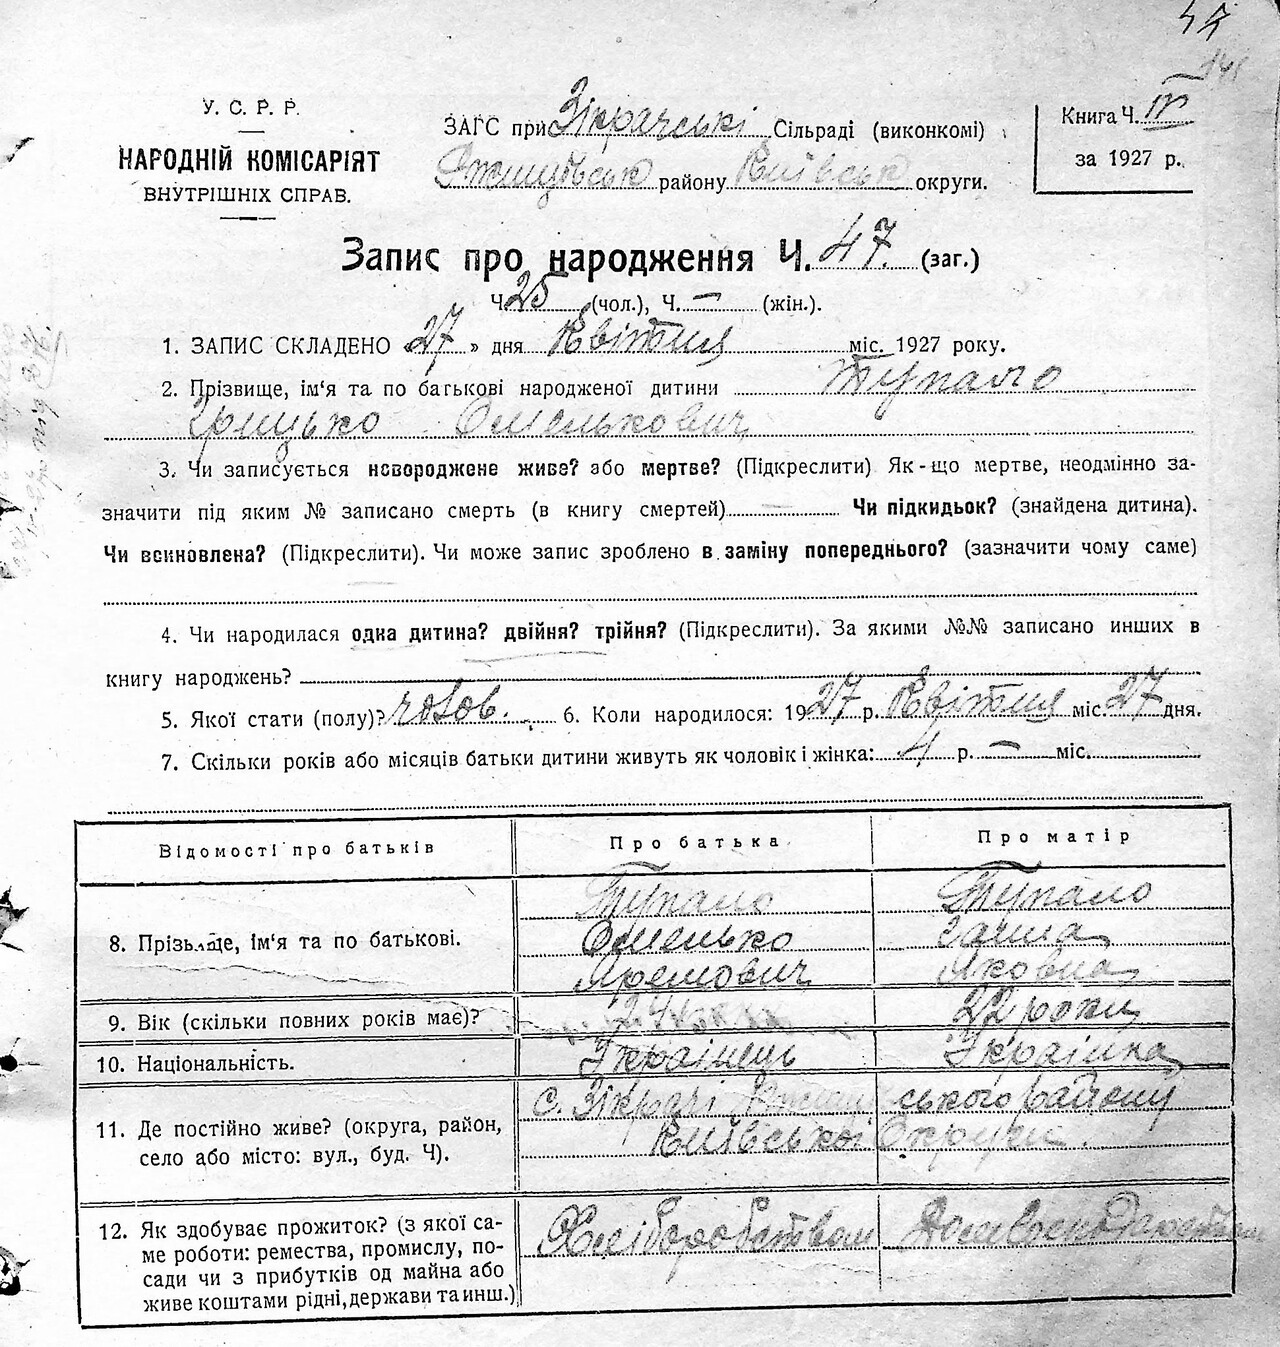 47
141
У. С. Р. Р.
НАРОДНІЙ КОМІСАРІЯТ
ВНУТРІШНІХ СПРАВ.
ЗАГС при Зікрачські Сільраді (виконкомі)
Ржищівськ району Київськ округи.
Книга Ч. IV
за 1927 р.
Запис про народження Ч. 47. (заг.)
Ч. 25 (чол.), Ч. — (жін.).
1. ЗАПИС СКЛАДЕНО «27» дня Квітня міс. 1927 року.
2. Прізвище, ім'я та по батькові народженої дитини Тупало
Грицько Омелькович
3. Чи записується новороджене живе? або мертве? (Підкреслити) Як-що мертве, неодмінно за-
значити під яким № записано смерть (в книгу смертей) — Чи підкидьок? (знайдена дитина).
Чи всиновлена? (Підкреслити). Чи може запис зроблено в заміну попереднього? (зазначити чому саме)
4. Чи народилася одна дитина? двійня? трійня? (Підкреслити). За якими №№ записано инших в
книгу народжень?
5. Якої стати (полу)? чолов. 6. Коли народилося: 1927 р. Квітня міс. 27 дня.
7. Скільки років або місяців батьки дитини живуть як чоловік і жінка: 4 р. — міс.
Відомості про батьків
Про батька
Про матір
8. Прізьвище, ім'я та по батькові.
Тупало
Омелько
Яремович
Тупало
Ганна
Яковна
9. Вік (скільки повних років має)?
24
22 роки
10. Національність.
Українець
Українка
11. Де постійно живе? (округа, район,
село або місто: вул., буд. Ч).
с. Зікрачі Ржищівського району
Київської Округи.
12. Як здобуває прожиток? (з якої са-
ме роботи: ремества, промислу, по-
сади чи з прибутків од майна або
живе коштами рідні, держави та инш.)
Хліборобством